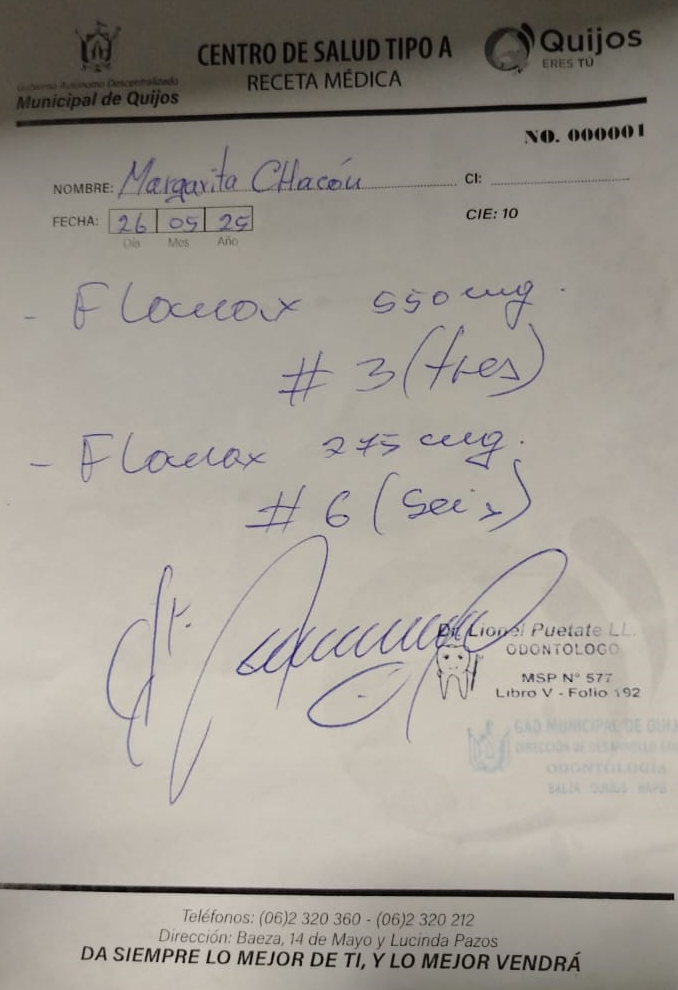 Gobierno Autónomo Descentralizado
Municipal de Quijos
CENTRO DE SALUD TIPO A
RECETA MÉDICA
Quijos
ERES TÚ
NO. 000001
NOMBRE: Margarita CHacón CI:
FECHA: 26 05 25 CIE: 10
Día Mes Año
- Flanax 550 mg.
# 3 (tres)
- Flanax 275 mg.
# 6 (Seis)
Dr. Lionel Puetate LL.
ODONTOLOGO
MSP N° 577
Libro V - Folio 192
GAD MUNICIPAL DE QUIJ
DIRECCIÓN DE DESARROLLO
ODONTOLOGÍA
BAEZA QUIJOS NAPO
Teléfonos: (06)2 320 360 - (06)2 320 212
Dirección: Baeza, 14 de Mayo y Lucinda Pazos
DA SIEMPRE LO MEJOR DE TI, Y LO MEJOR VENDRÁ